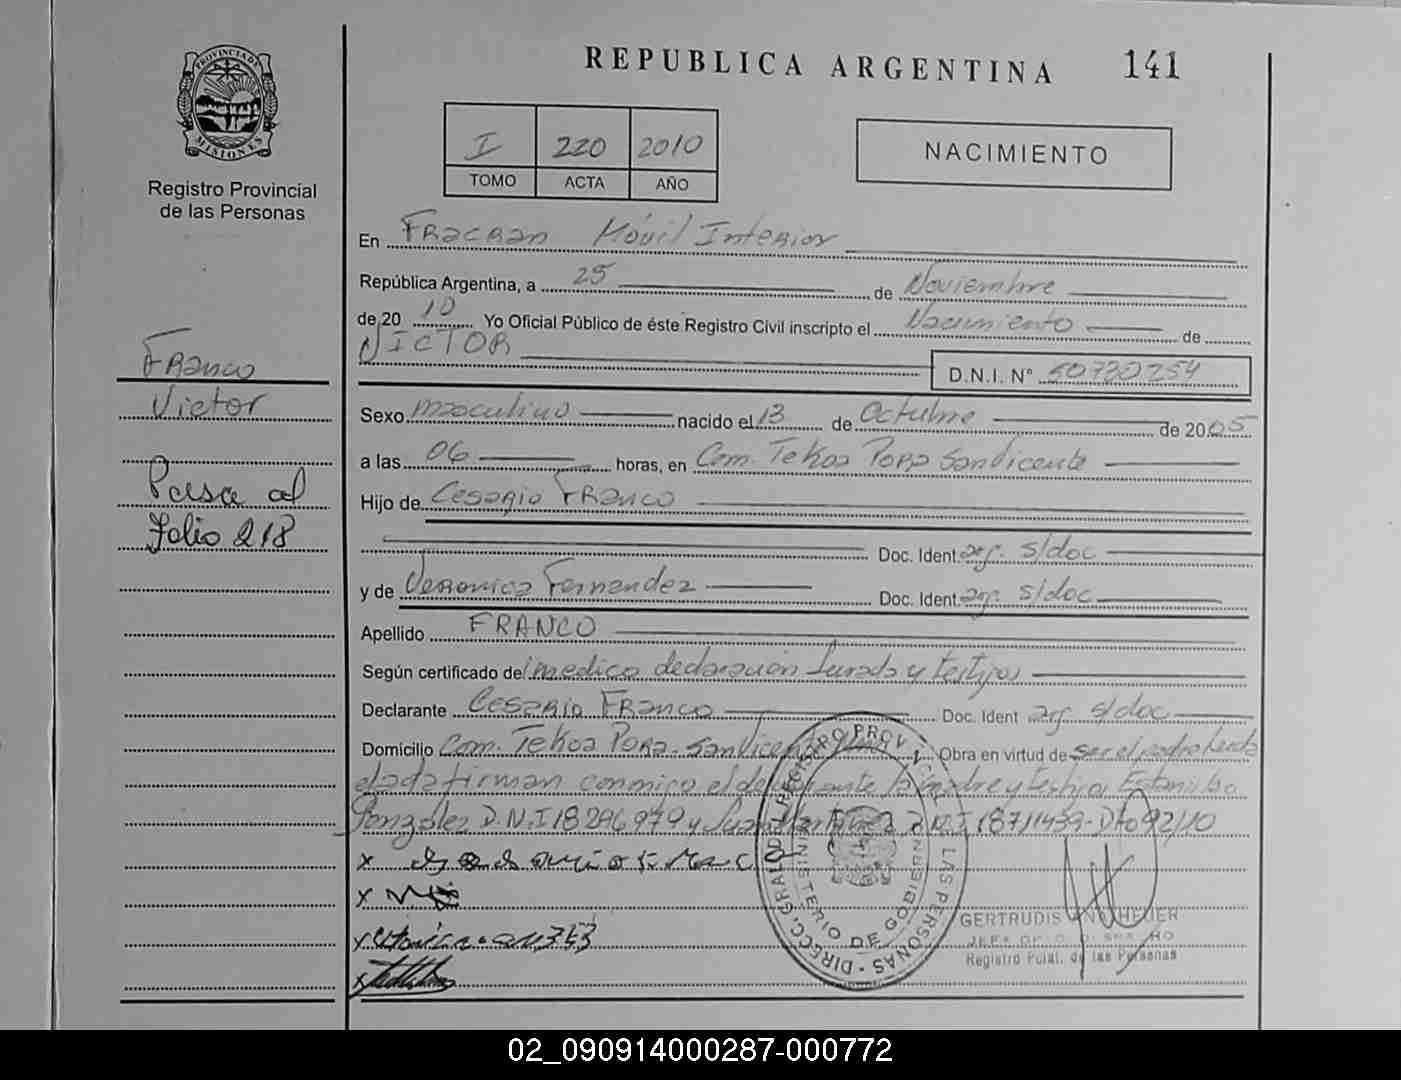 PROVINCIA DE
MISIONES
Registro Provincial
de las Personas
REPUBLICA ARGENTINA 141
I 220 2010
TOMO ACTA AÑO
NACIMIENTO
En Fracran Móvil Interior
República Argentina, a 25 de Noviembre
de 20 10 Yo Oficial Público de éste Registro Civil inscripto el Nacimiento de
VICTOR
D.N.I. N° 50730254
Franco
Victor
Pasa al
Folio 218
Sexo masculino nacido el 13 de Octubre de 20 05
a las 06 horas, en Com. Tekoa Pora San Vicente
Hijo de Cesario Franco
Doc. Ident. arg. s/doc
y de Veronica Fernendez Doc. Ident. arg. s/doc
Apellido FRANCO
Según certificado del medico declaración Jurada y testigos
Declarante Cesario Franco Doc. Ident arg. s/doc
Domicilio Com. Tekoa Pora - San Vicente Obra en virtud de ser el padre
firman conmigo el declarante la madre y testigos Estanislao
Gonzalez D.N.I 18296979 y Juan D.N.I 18711439-Dto 92/10
x
x
x
x
DIRECC. GRAL. DEL REGISTRO PROV. DE LAS PERSONAS
MINISTERIO DE GOBIERNO
GERTRUDIS
Registro Pcial. de las Personas
02_090914000287-000772